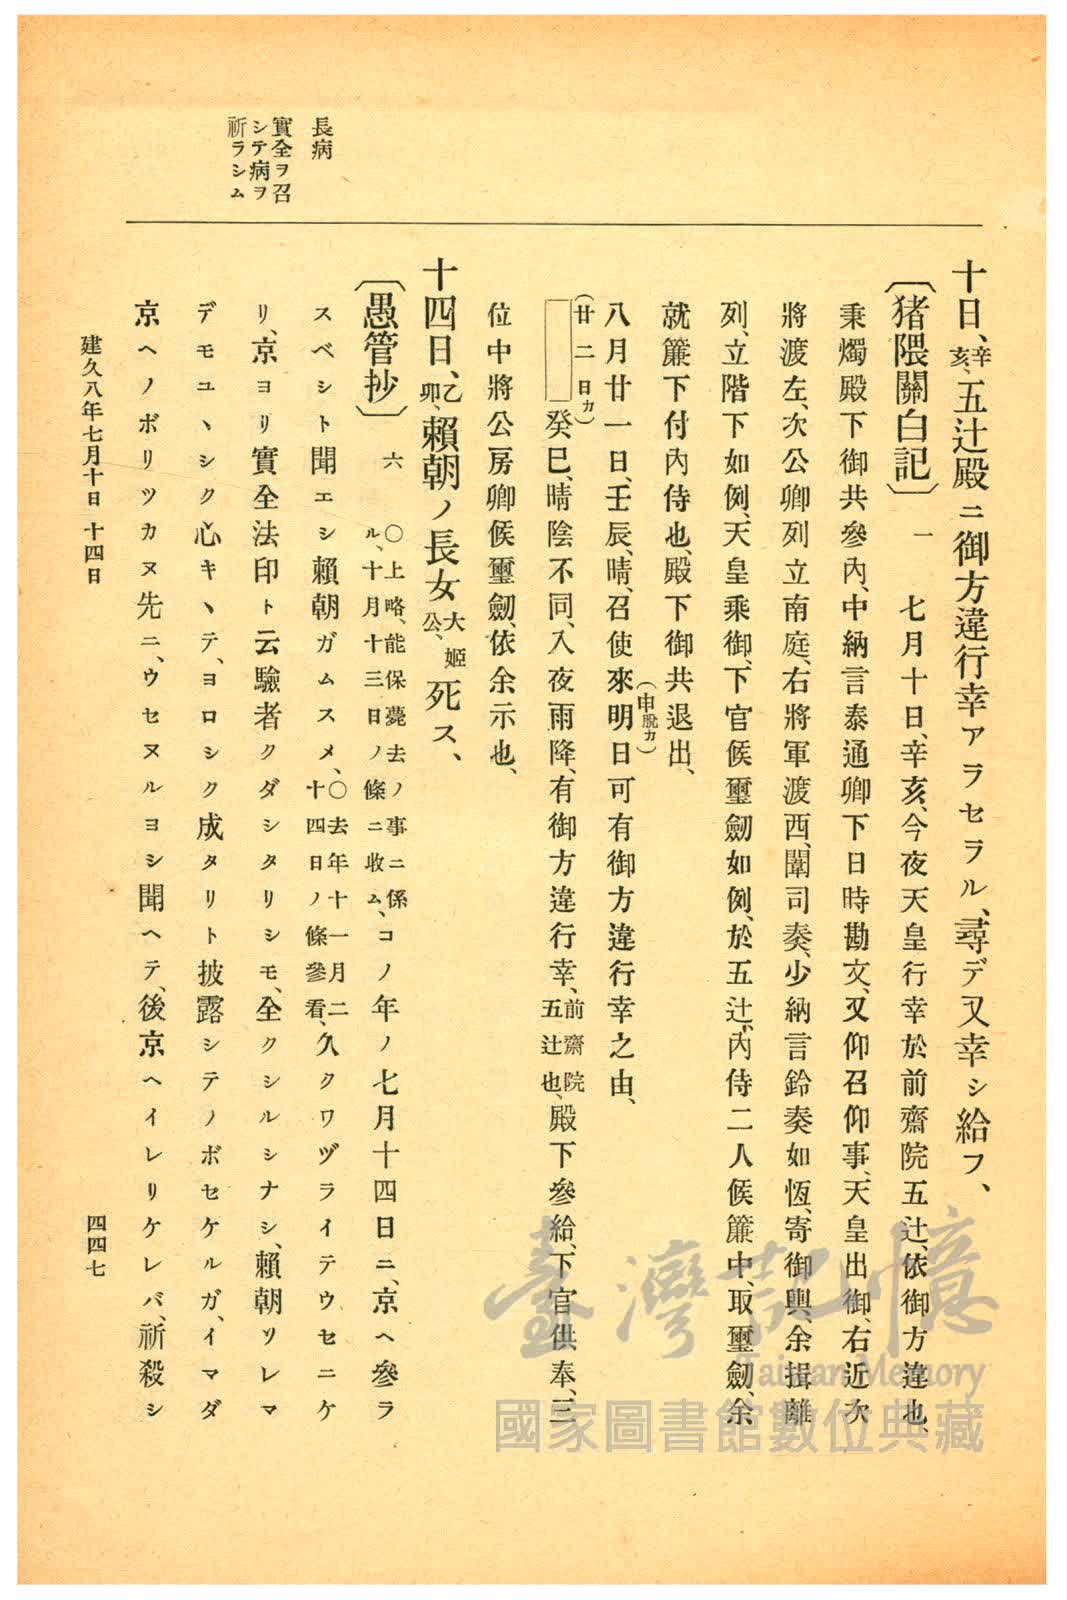 長病
實全ヲ召
シテ病ヲ
祈ラシム
十日、辛亥、五辻殿ニ御方違行幸アラセラル、尋デ又幸シ給フ、
〔猪隈關白記〕 一 七月十日、辛亥、今夜天皇行幸於前齋院五辻、依御方違也、
秉燭殿下御共參內、中納言泰通卿下日時勘文、又仰召仰事、天皇出御、右近次
將渡左、次公卿列立南庭、右將軍渡西、闈司奏、少納言鈴奏如恆、寄御輿、余揖離
列、立階下如例、天皇乘御、下官候璽劒如例、於五辻、內侍二人候簾中、取璽劒、余
就簾下付內侍也、殿下御共退出、
八月廿一日、壬辰、晴、召使來明日可有御方違行幸之由、
(申脫カ)
(廿二日カ)
癸巳、晴陰不同、入夜雨降、有御方違行幸、前齋院五辻也、殿下參給、下官供奉、三
位中將公房卿候璽劒、依余示也、
十四日、乙卯、賴朝ノ長女大姬公、死ス、
〔愚管抄〕 六 〇上略、能保薨去ノ事ニ係ル、十月十三日ノ條ニ收ム、コノ年ノ七月十四日ニ、京ヘ參ラ
スベシト聞エシ賴朝ガムスメ、〇去年十一月二十四日ノ條參看、久クワヅライテウセニケ
リ、京ヨリ實全法印ト云驗者クダシタリシモ、全クシルシナシ、賴朝ソレマ
デモユヽシク心キヽテ、ヨロシク成タリト披露シテノボセケルガ、イマダ
京ヘノボリツカヌ先ニ、ウセヌルヨシ聞ヘテ、後京ヘイレリケレバ、祈殺シ
建久八年七月十日 十四日
四四七
臺灣記憶
Taiwan Memory
國家圖書館數位典藏